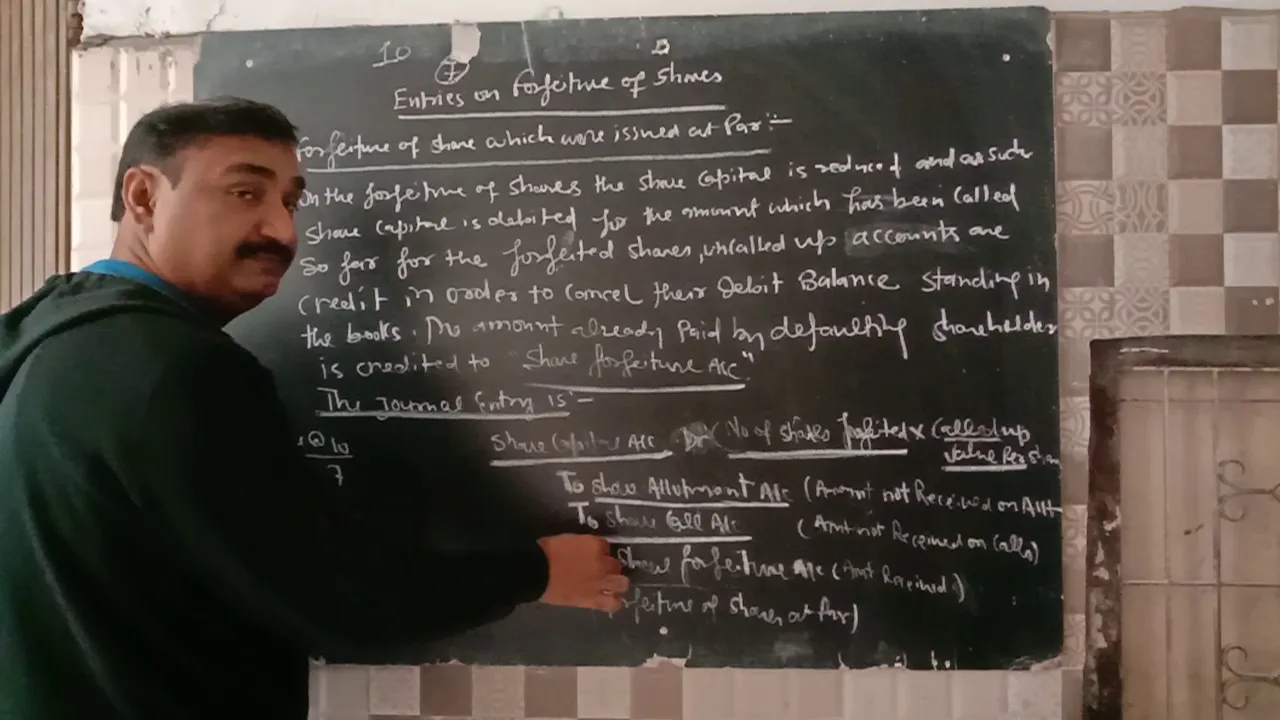 10
7
Entries on Forfeiture of Shares
Forfeiture of share which were issued at Par :-
On the forfeiture of shares the share capital is reduced and as such
share capital is debited for the amount which has been called
so far for the forfeited shares, uncalled up accounts are
credit in order to cancel their debit Balance standing in
the books. The amount already paid by defaulting shareholder
is credited to "Share forfeiture A/c"
The Journal Entry is :-
@ 10
7
Share Capital A/c Dr (No of shares forfeited x Called up
value Per share
To share Allotment A/c (Amount not Received on Allt
To share Call A/c (Amt not Received on Calls)
Share forfeiture A/c (Amt Received)
forfeiture of shares at Par)